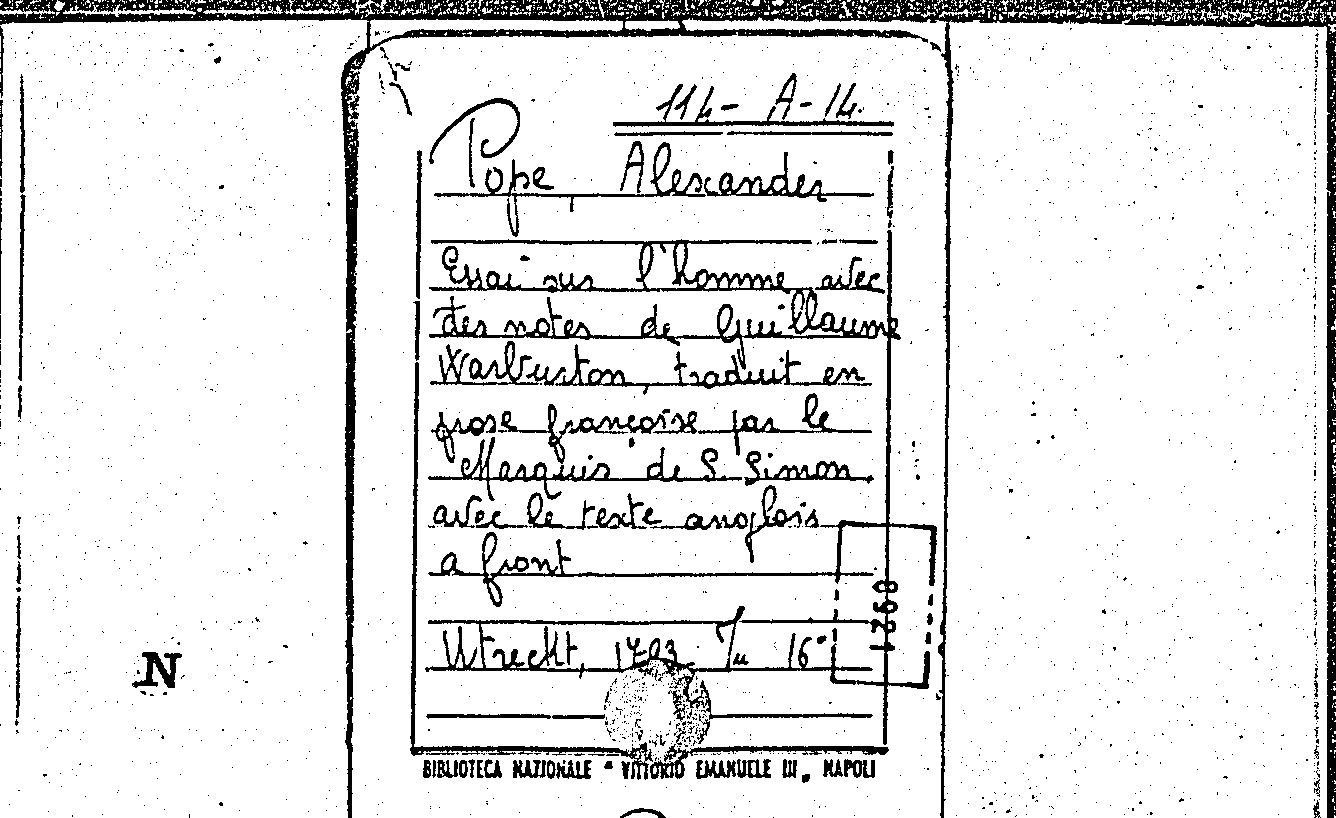 114 - A - 14.
Pope, Alexander
Essai sur l'homme avec
des notes de Guillaume
Warburton, traduit en
prose françoise par le
Marquis de S. Simon,
avec le texte anglois
a front
Utrecht, 16°
1268
N
BIBLIOTECA NAZIONALE "VITTORIO EMANUELE III„ NAPOLI